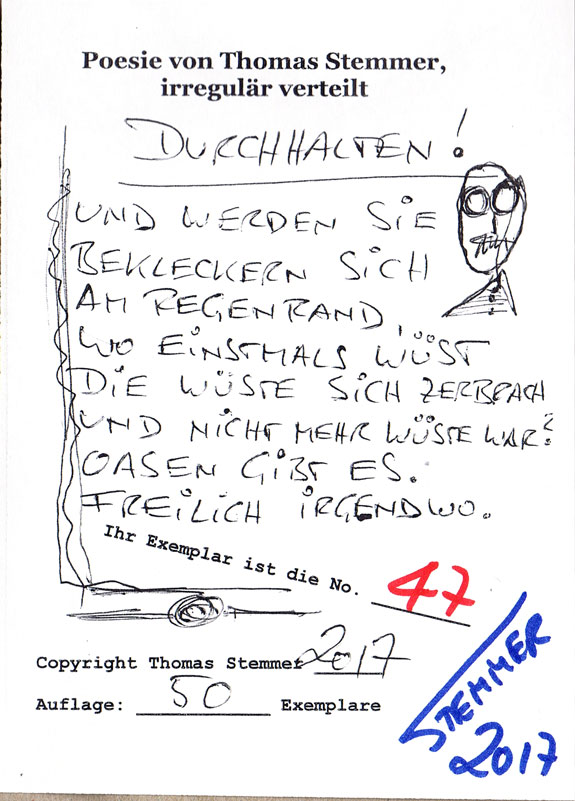 Poesie von Thomas Stemmer,
irregulär verteilt
DURCHHALTEN!
UND WERDEN SIE
BEKLECKERN SICH
AM REGENRAND,
WO EINSTMALS WÜST
DIE WÜSTE SICH ZERBRACH
UND NICHT MEHR WÜSTE WAR?
OASEN GIBT ES.
FREILICH IRGENDWO.
Ihr Exemplar ist die No. 47
Copyright Thomas Stemmer 2017
Auflage: 50 Exemplare
STEMMER
2017